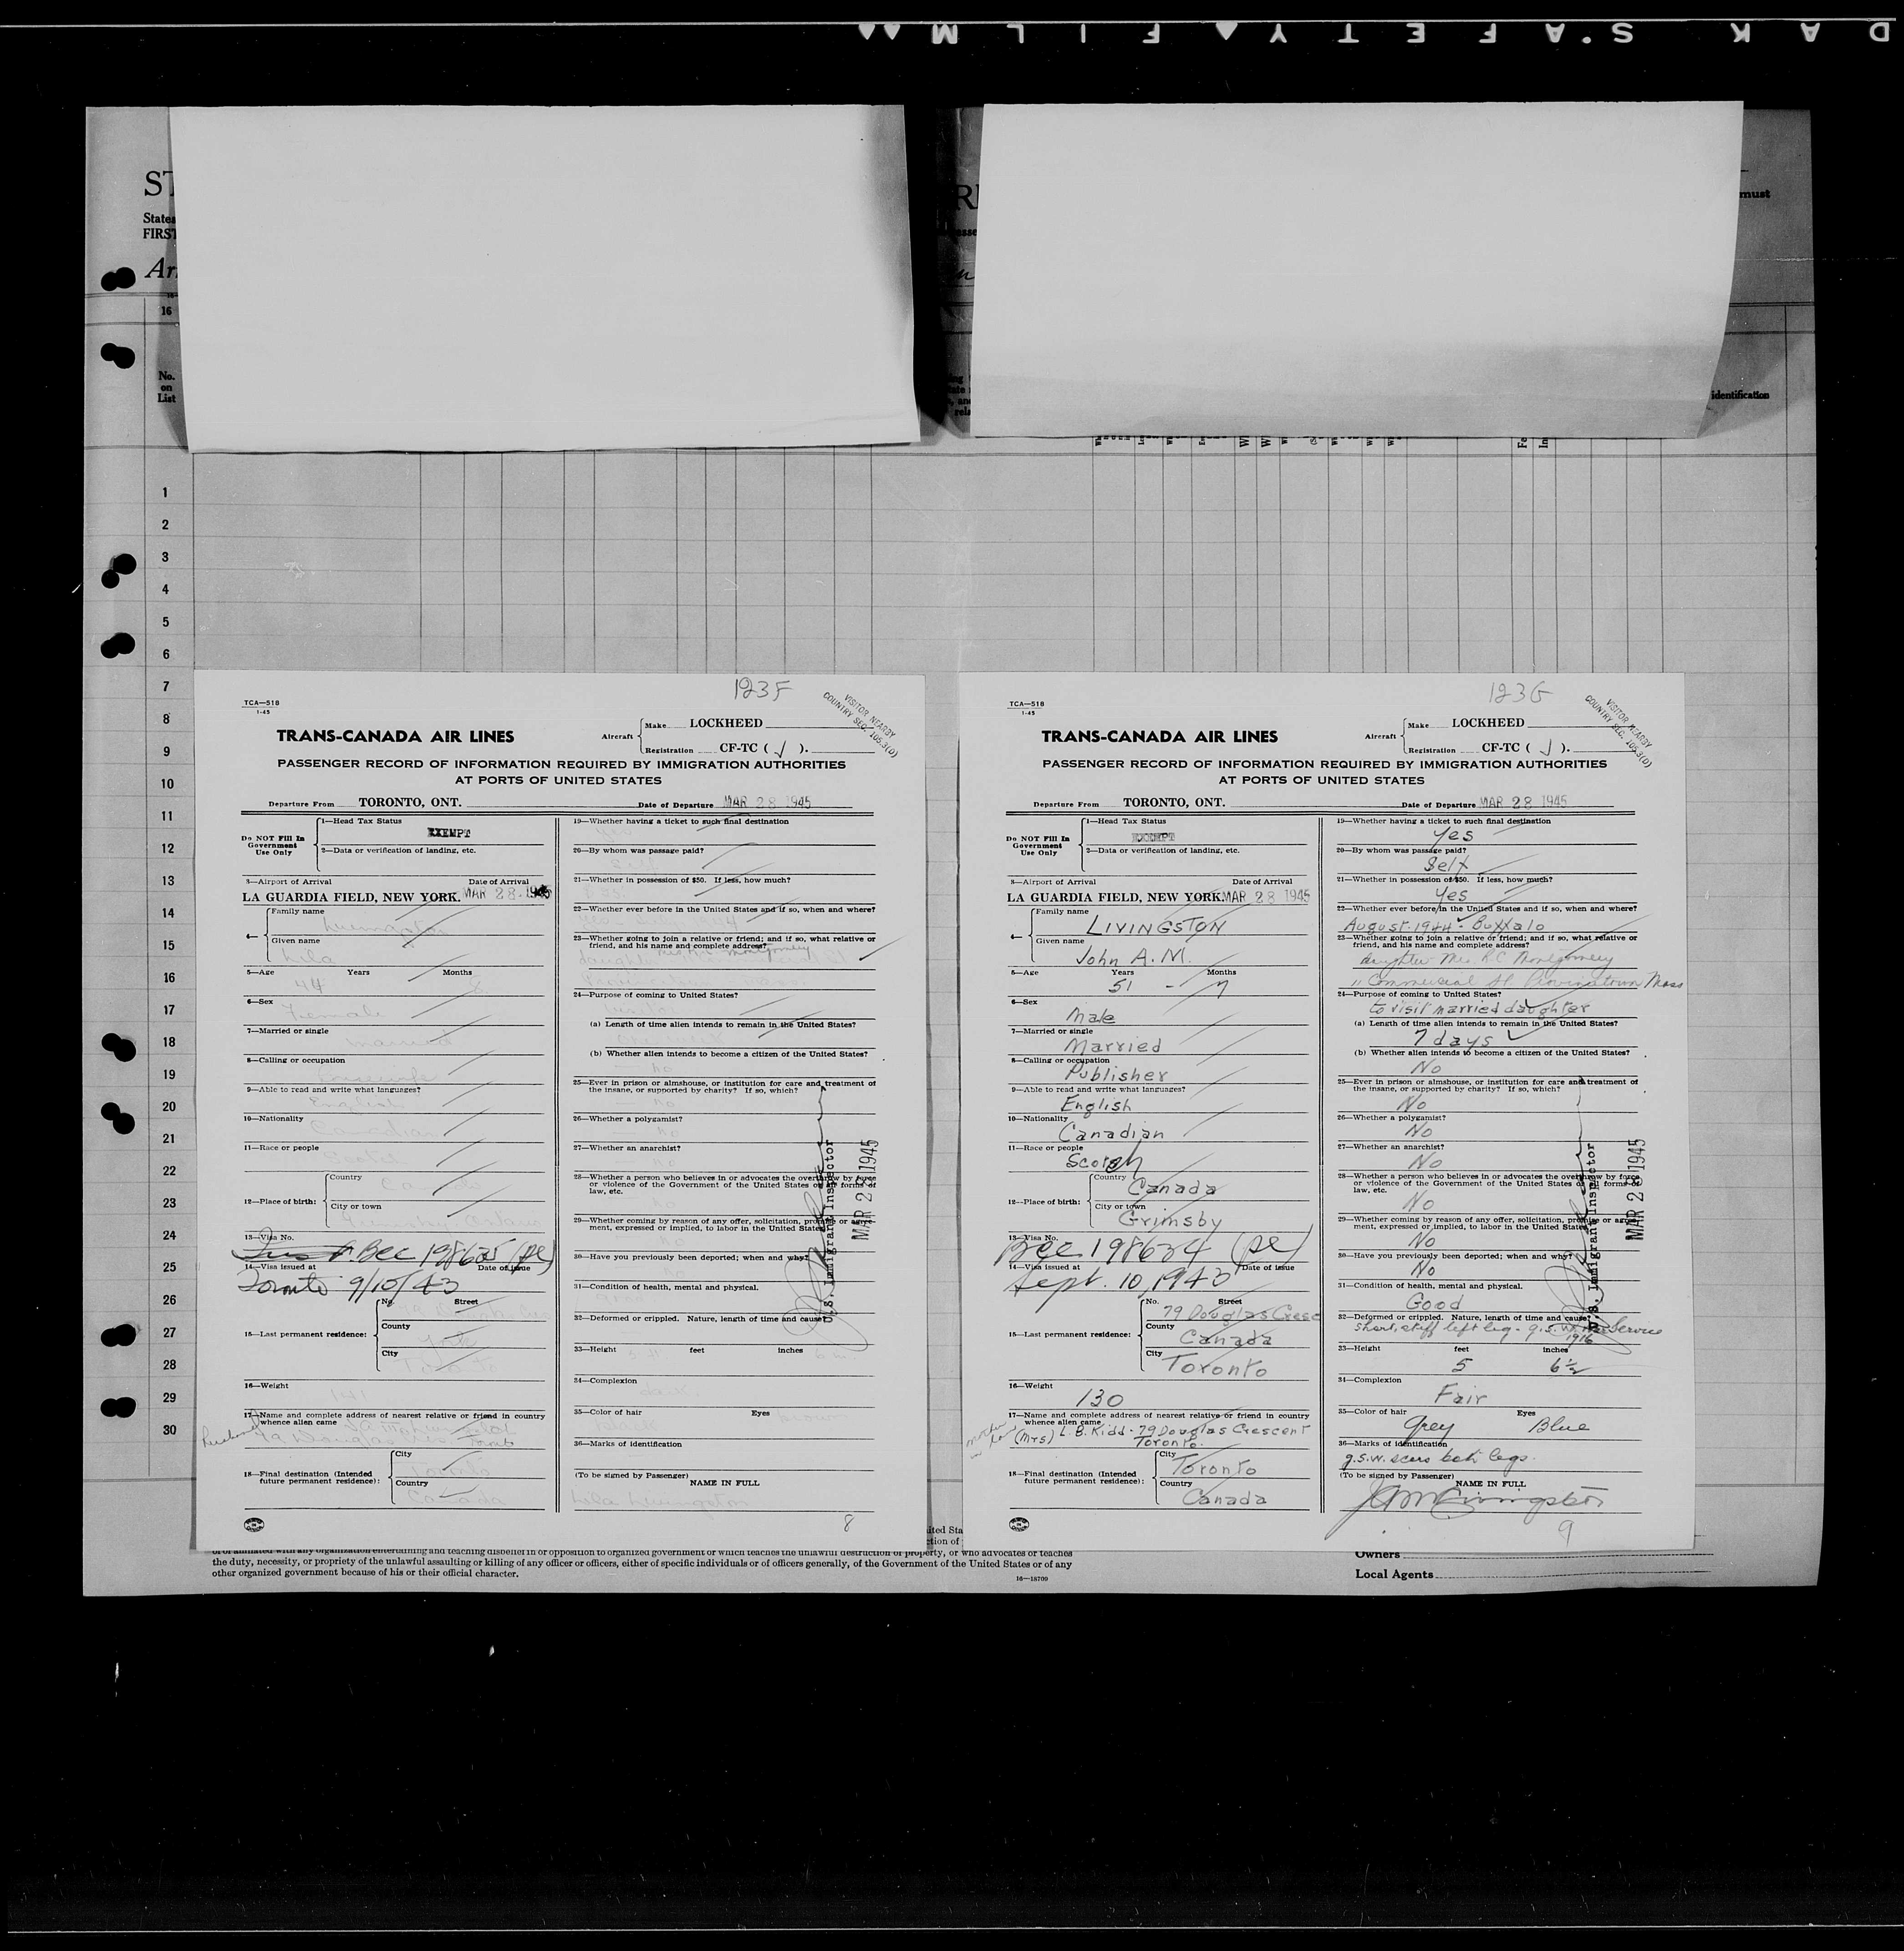 DAK S'AFETY FILM
ST
States
FIRST
must
16
No.
on
List
identification
1
2
3
4
5
6
7
8
9
10
11
12
13
14
15
16
17
18
19
20
21
22
23
24
25
26
27
28
29
30
123F
TCA—518
1-45
VISITOR NEARBY
COUNTRY SEC. 105.3(D)
TRANS-CANADA AIR LINES
Aircraft
Make LOCKHEED
Registration CF-TC ( J ).
PASSENGER RECORD OF INFORMATION REQUIRED BY IMMIGRATION AUTHORITIES
AT PORTS OF UNITED STATES
Departure From TORONTO, ONT. Date of Departure MAR 28 1945
Do NOT Fill In
Government
Use Only
1—Head Tax Status
EXEMPT
2—Data or verification of landing, etc.
3—Airport of Arrival Date of Arrival
LA GUARDIA FIELD, NEW YORK. MAR 28 1945
4—
Family name
Livingston
Given name
Lila
5—Age Years Months
44
6—Sex
Female
7—Married or single
Married
8—Calling or occupation
Housewife
9—Able to read and write what languages?
English
10—Nationality
Canadian
11—Race or people
12—Place of birth:
Country
Canada
City or town
Grimsby Ontario
13—Visa No.
Bec 198635 (pe)
14—Visa issued at Date of issue
Toronto 9/10/43
15—Last permanent residence:
No. Street
County
York
City
Toronto
16—Weight
141
17—Name and complete address of nearest relative or friend in country
whence alien came
husband
79 Douglas Toronto
18—Final destination (Intended
future permanent residence):
City
Toronto
Country
Canada
19—Whether having a ticket to such final destination
20—By whom was passage paid?
21—Whether in possession of $50. If less, how much?
22—Whether ever before in the United States and if so, when and where?
23—Whether going to join a relative or friend; and if so, what relative or
friend, and his name and complete address?
daughter Montgomery
24—Purpose of coming to United States?
(a) Length of time alien intends to remain in the United States?
(b) Whether alien intends to become a citizen of the United States?
no
25—Ever in prison or almshouse, or institution for care and treatment of
the insane, or supported by charity? If so, which?
no
26—Whether a polygamist?
no
27—Whether an anarchist?
no
28—Whether a person who believes in or advocates the overthrow by force
or violence of the Government of the United States or all forms of
law, etc.
no
29—Whether coming by reason of any offer, solicitation, promise or agree-
ment, expressed or implied, to labor in the United States?
no
30—Have you previously been deported; when and why?
no
31—Condition of health, mental and physical.
32—Deformed or crippled. Nature, length of time and cause?
33—Height feet inches
34—Complexion
dark
35—Color of hair Eyes
36—Marks of identification
(To be signed by Passenger) NAME IN FULL
Lila Livingston
U.S. Immigrant Inspector
MAR 28 1945
8
123G
TCA—518
1-45
VISITOR NEARBY
COUNTRY SEC. 105.3(D)
TRANS-CANADA AIR LINES
Aircraft
Make LOCKHEED
Registration CF-TC ( J ).
PASSENGER RECORD OF INFORMATION REQUIRED BY IMMIGRATION AUTHORITIES
AT PORTS OF UNITED STATES
Departure From TORONTO, ONT. Date of Departure MAR 28 1945
Do NOT Fill In
Government
Use Only
1—Head Tax Status
EXEMPT
2—Data or verification of landing, etc.
3—Airport of Arrival Date of Arrival
LA GUARDIA FIELD, NEW YORK. MAR 28 1945
4—
Family name
LIVINGSTON
Given name
John A. M.
5—Age Years Months
51 - 7
6—Sex
Male
7—Married or single
Married
8—Calling or occupation
Publisher
9—Able to read and write what languages?
English
10—Nationality
Canadian
11—Race or people
Scotch
12—Place of birth:
Country
Canada
City or town
Grimsby
13—Visa No.
Bec 198634 (pe)
14—Visa issued at Date of issue
Sept. 10, 1943
15—Last permanent residence:
No. Street
79 Douglas Cresc
County
Canada
City
Toronto
16—Weight
130
17—Name and complete address of nearest relative or friend in country
whence alien came
mother in law
(Mrs) L.B. Kidd - 79 Douglas Crescent
Toronto.
18—Final destination (Intended
future permanent residence):
City
Toronto
Country
Canada
19—Whether having a ticket to such final destination
Yes
20—By whom was passage paid?
Self
21—Whether in possession of $50. If less, how much?
Yes
22—Whether ever before in the United States and if so, when and where?
August 1944 - Buffalo
23—Whether going to join a relative or friend; and if so, what relative or
friend, and his name and complete address?
daughter Mrs. R.C. Montgomery
11 Commercial St Provincetown Mass
24—Purpose of coming to United States?
to visit married daughter
(a) Length of time alien intends to remain in the United States?
7 days
(b) Whether alien intends to become a citizen of the United States?
No
25—Ever in prison or almshouse, or institution for care and treatment of
the insane, or supported by charity? If so, which?
No
26—Whether a polygamist?
No
27—Whether an anarchist?
No
28—Whether a person who believes in or advocates the overthrow by force
or violence of the Government of the United States or all forms of
law, etc.
No
29—Whether coming by reason of any offer, solicitation, promise or agree-
ment, expressed or implied, to labor in the United States?
No
30—Have you previously been deported; when and why?
No
31—Condition of health, mental and physical.
Good
32—Deformed or crippled. Nature, length of time and cause?
Short, stiff left leg - g.s.w. Service
1916
33—Height feet inches
5 6½
34—Complexion
Fair
35—Color of hair Eyes
Grey Blue
36—Marks of identification
g.s.w. scars both legs.
(To be signed by Passenger) NAME IN FULL
JAM Livingston
U.S. Immigrant Inspector
MAR 28 1945
9
or of affiliated with any organization entertaining and teaching disbelief in or opposition to organized government or which teaches the unlawful destruction of property, or who advocates or teaches
the duty, necessity, or propriety of the unlawful assaulting or killing of any officer or officers, either of specific individuals or of officers generally, of the Government of the United States or of any
other organized government because of his or their official character.
16—18709
Owners
Local Agents